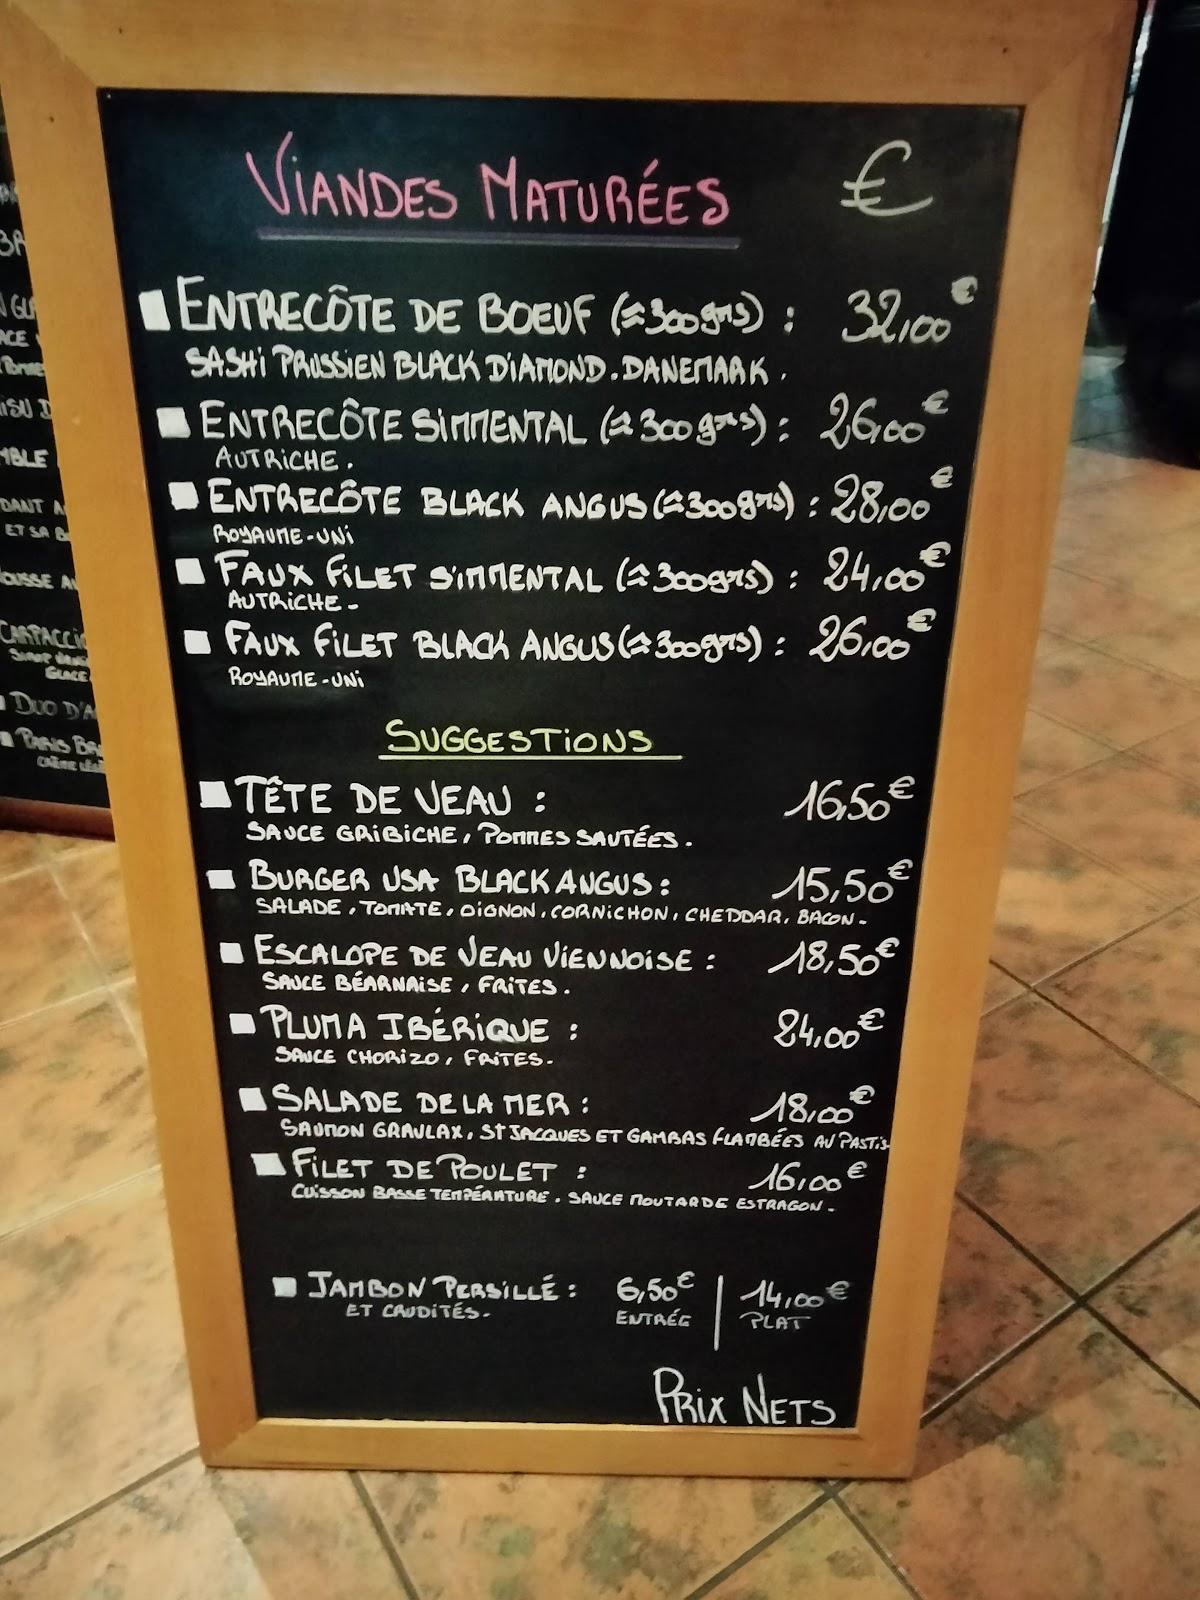 VIANDES MATURÉES €
ENTRECÔTE DE BOEUF (≈300grs) : 32,00€
SASHI PRUSSIEN BLACK DIAMOND. DANEMARK.
ENTRECÔTE SIMMENTAL (≈300grs) : 26,00€
AUTRICHE.
ENTRECÔTE BLACK ANGUS (≈300grs) : 28,00€
ROYAUME-UNI
FAUX FILET SIMMENTAL (≈300grs) : 24,00€
AUTRICHE-
FAUX FILET BLACK ANGUS (≈300grs) : 26,00€
ROYAUME-UNI
SUGGESTIONS
TÊTE DE VEAU : 16,50€
SAUCE GRIBICHE, POMMES SAUTÉES.
BURGER USA BLACK ANGUS : 15,50€
SALADE, TOMATE, OIGNON, CORNICHON, CHEDDAR, BACON-
ESCALOPE DE VEAU VIENNOISE : 18,50€
SAUCE BÉARNAISE, FRITES.
PLUMA IBÉRIQUE : 24,00€
SAUCE CHORIZO, FRITES-
SALADE DE LA MER : 18,00€
SAUMON GRAVLAX, ST JACQUES ET GAMBAS FLAMBÉES AU PASTIS
FILET DE POULET : 16,00€
CUISSON BASSE TEMPÉRATURE. SAUCE MOUTARDE ESTRAGON-
JAMBON PERSILLÉ : 6,50€ | 14,00€
ET CRUDITÉS- ENTRÉE PLAT
PRIX NETS
MBLE
ET SA
CARPACCIO
GLACE
DUO D'A
PARIS BR